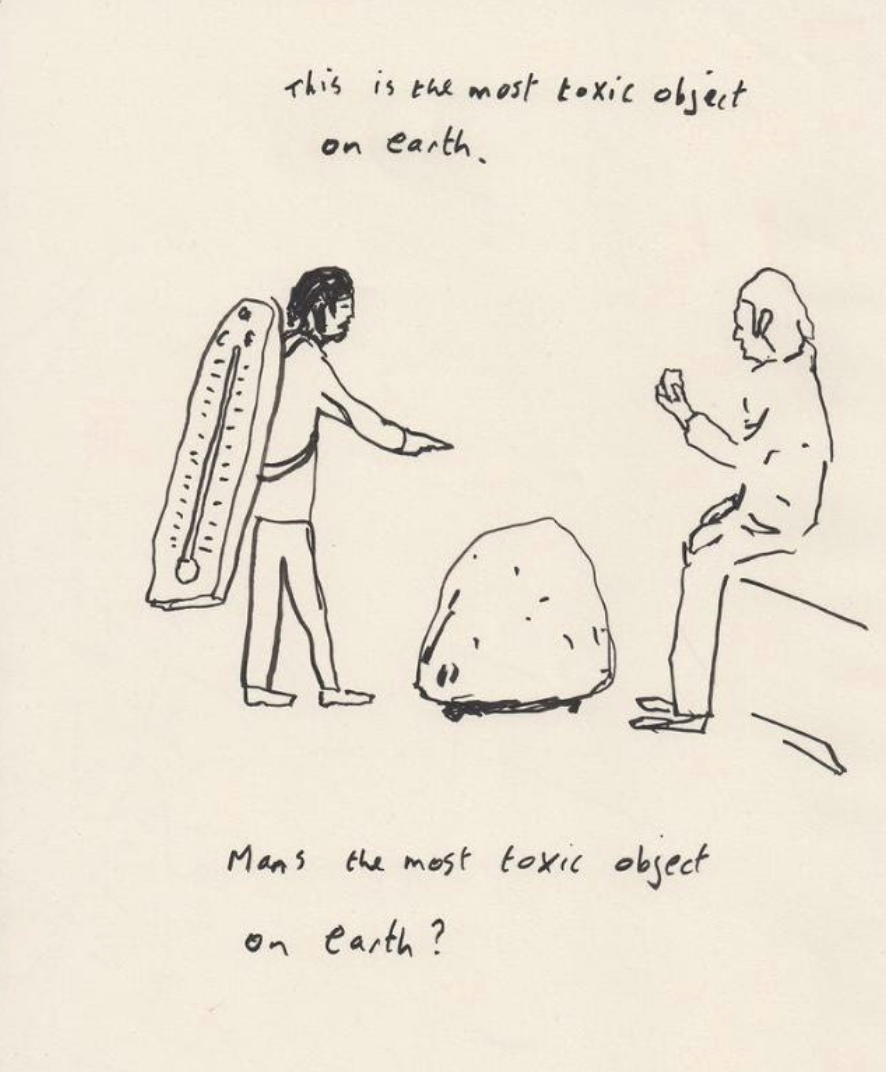 This is the most toxic object
on earth.
C F
Mans the most toxic object
on earth?